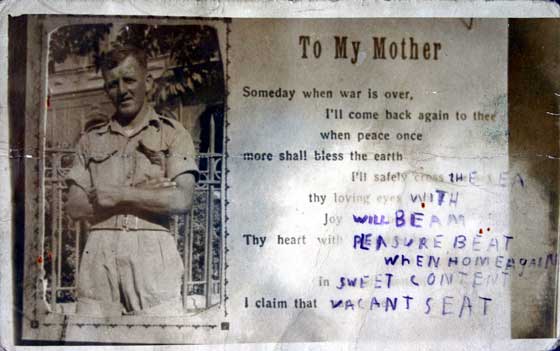 To My Mother
Someday when war is over,
I'll come back again to thee
when peace once
more shall bless the earth
I'll safely cross THE SEA
thy loving eyes WITH
Joy WILL BEAM
Thy heart with PLEASURE BEAT
WHEN HOME AGAIN
in SWEET CONTENT
I claim that VACANT SEAT